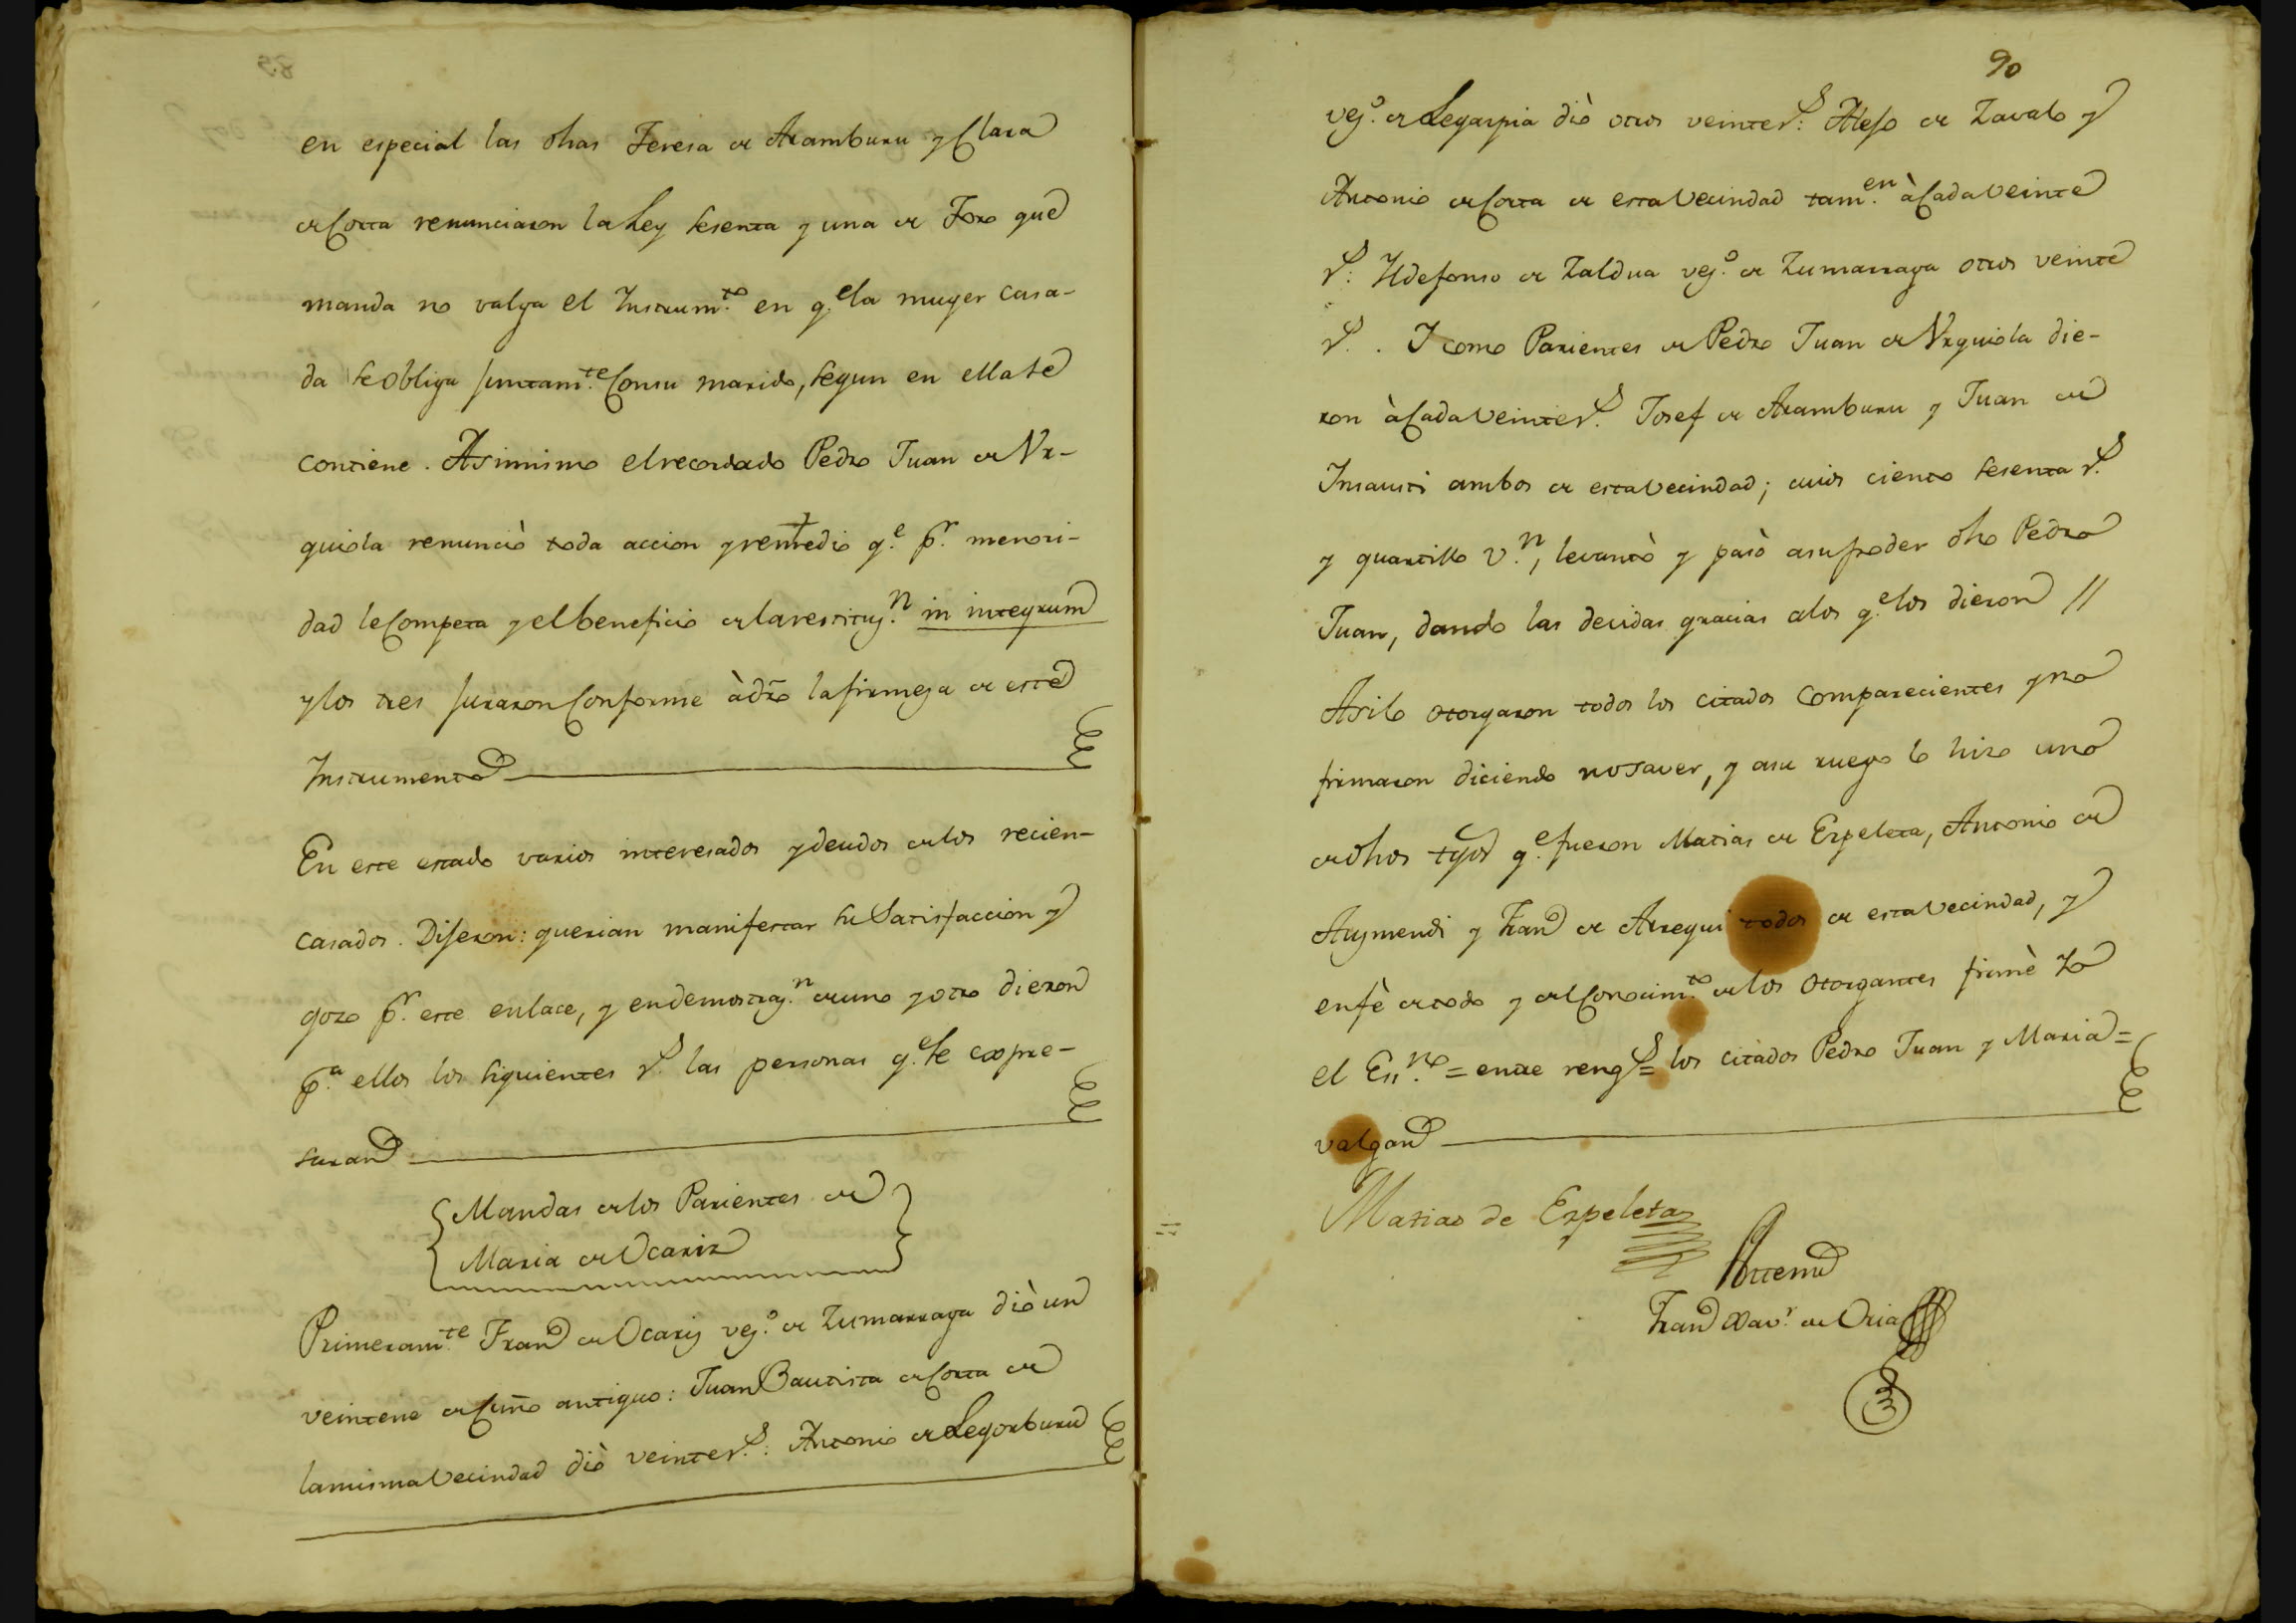 en especial las dhas Teresa de Aramburu y Clara
de Corta renunciaron la Ley sesenta y una de Toro que
manda no valga el Instrum.to en q.e la muger casa-
da se obliga juntam.te Con su marido, segun en ella se
contiene. Asimismo el recordado Pedro Juan de Vr-
quiola renunciò toda accion y remedio q.e p.r menori-
dad le Competa y el beneficio de la restituz.n in integrum
y los tres juraron Conforme à dro la firmeza de este
Instrumento
En este estado varios interesados y deudos de los recien-
casados. Dijeron: querian manifestar su Satisfaccion y
gozo p.r este enlace, y en demostraz.n de uno y otro dieron
p.a ellos los siguientes r.s las personas q.e se expre-
saran
Mandas de los Parientes de
Maria de Ocariz
Primeram.te Fran.co de Ocariz vez.o de Zumarraga diò un
veinteno de Cuño antiguo: Juan Bautista de Corta de
la misma Vecindad diò veinte r.s: Antonio de Legorburu
90
vez.o de Legazpia diò otros veinte r.s: Alejo de Zavalo y
Antonio de Corta de esta Vecindad tam.en à Cada veinte
r.s: Yldefonso de Zaldua vez.o de Zumarraga otros veinte
r.s. Y como Parientes de Pedro Juan de Vrquiola die-
ron à Cada Veinte r.s Josef de Aramburu y Juan de
Insausti ambos de esta Vecindad; cuios ciento sesenta r.s
y quartillo v.n, levantò y pasò a su poder dho Pedro
Juan, dando las devidas gracias a los q.e los dieron //
Asi lo otorgaron todos los citados Comparecientes y no
firmaron diciendo no saver, y a su ruego lo hizo uno
de dhos tgos q.e fueron Matias de Ezpeleta, Antonio de
Aizmendi y Fran.co de Arregui todos de esta Vecindad, y
en fè de todo y del Conocim.to de los Otorgantes firmè Yo
el Ess.no = entre reng.s = los citados Pedro Juan y Maria =
valgan
Matias de Ezpeleta
Antemi
Fran.co Xav.r de Oria